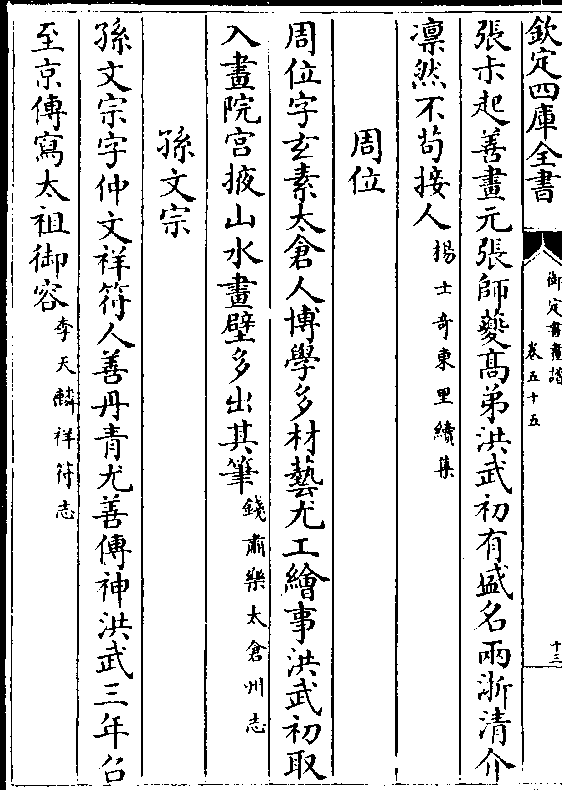 欽定四庫全書
御定書畫譜
卷五十五
十三
張子起善畫元張師夔高弟洪武初有盛名兩浙清介
凛然不苟接人楊士奇東里續集
周位
周位字玄素太倉人博學多材藝尤工繪事洪武初取
入畫院宫掖山水畫壁多出其筆錢肅樂太倉州志
孫文宗
孫文宗字仲文祥符人善丹青尤善傳神洪武三年召
至京傳寫太祖御容李天麟祥符志